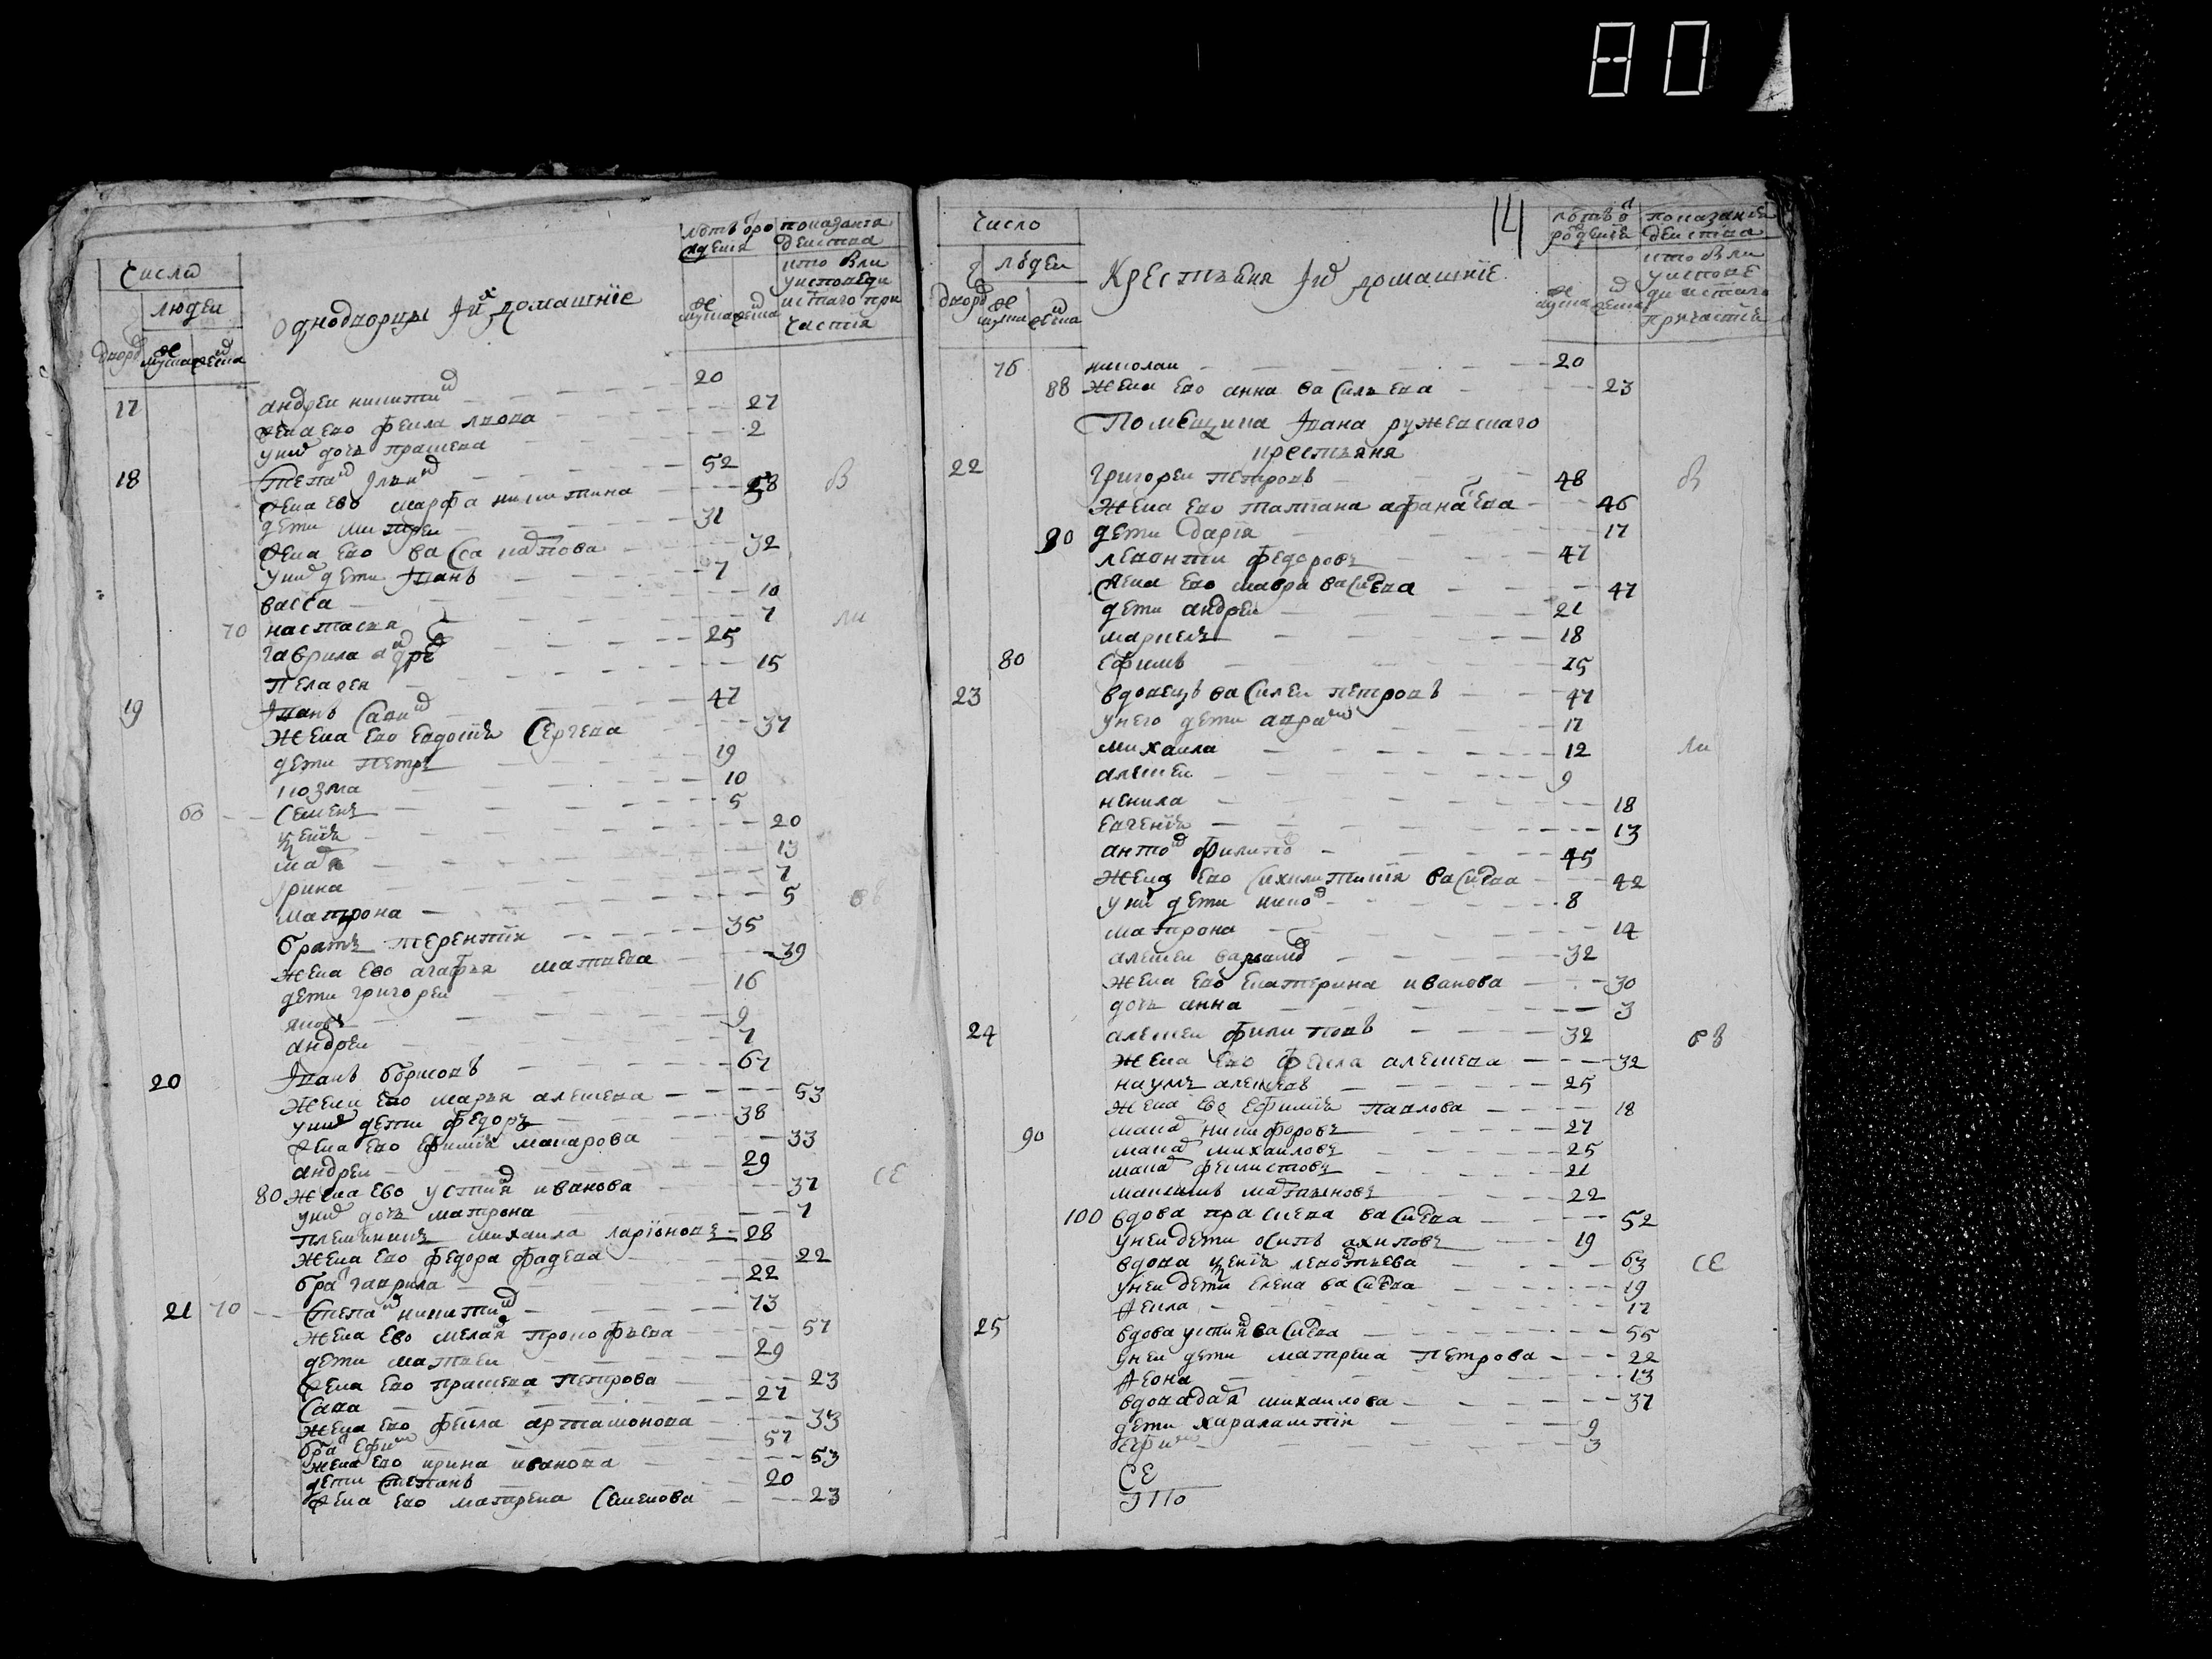 80
Число
людеи
дворо муска женска
однодворцы и их домашние
лотъ от рождения
муска женска
показания действа
кто был у исповеди и стаго причастия
17 андреи никитин 20
жена ево фекла лвова 27
у них дочь прасковя 2
18 степан илин 52 в
жена ево марфа никитина 58
дети митреи 31
жена ево васса карпова 32
у них дети иванъ 7
васса 10
70 настасья 7 ли
гаврила андре 25
пелагея 15
19 Iванъ Савин 47
жена ево евдокия Сергева 37
дети петръ 19
козма 10
60 Семенъ 5
20
марья 13
Iрина 7
матрона 5 ов
братъ терентии 35
жена ево агафья матвева 39
дети григореи 16
яковъ 9
андреи 7
20 Iванъ борисовъ 67
жена ево марья алексева 53
у них дети федоръ 38
жена ево ефимия макарова 33
андреи 29
80 жена ево устиня иванова 37 СЕ
у них дочь матрона 7
племянникъ михаила ларионовъ 28
жена ево федора фадева 22
брат гаврила 22
21 70 Степан никитин 73
жена ево меланя прокофьева 57
дети матвеи 29
жена ево прасковя петрова 23
Сава 27
жена ево фекла артамонова 33
брат Ефим 57
жена ево ирина иванова 53
дети степанъ 20
жена ево матрена Семенова 23
14
Число
людеи
дворо муска женска
Крестьяня и их домашние
лотъ от рождения
муска женска
показания действа
кто был у исповеди и стаго причастия
76 николаи 20
88 жена ево анна василева 23
Помещика Iвана ружевскаго
крестьяня
22 Григореи петровъ 48 в
жена ево татиана афанасева 46
90 дети дария 17
левонти федоровъ 47
жена ево мавра василева 47
дети андреи 21
маркелъ 18
80 Ефимъ 15
23 вдовецъ василеи петровъ 47
у него дети аврам 17
михаила 12 ли
алексеи 9
ненила 18
евгения 13
антон филипов 45
жена ево василева 42
у них дети никон 8
матрона 14
алексеи варламов 32
жена ево екатерина иванова 30
дочь анна 3
24 алексеи филиповъ 32 ов
жена ево фекла алексева 32
наумъ алексевъ 25
жена ево ефимия павлова 18
90 макар никифоровъ 27
макар михаиловъ 25
макар феклистовъ 21
максимъ мартыновъ 22
100 вдова прасковя василева 52
у неи дети осипъ ахиповъ 19
вдова левонтьева 63 СЕ
у неи дети елена василева 19
фекла 17
25 вдова устиня василева 55
у неи дети матрена петрова 22
феона 13
вдова даря михаилова 37
дети харалампии 9
Ефим 3
СЕ